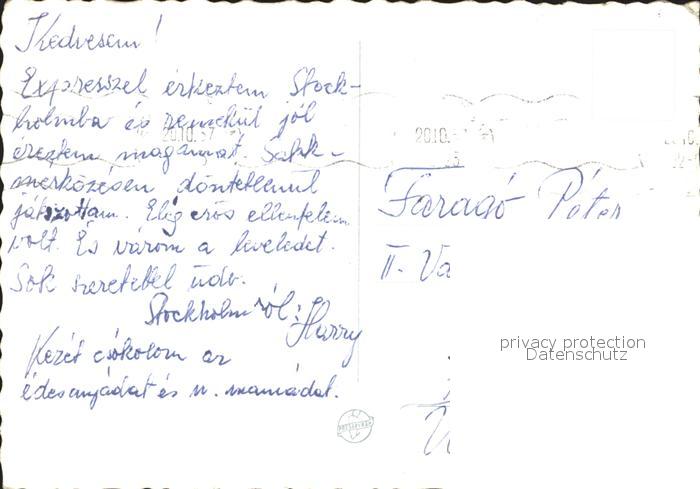 Kedvesem!
Expresszel érkeztem Stock-
holmba és remekül jól
éreztem magamat. Sakk-
mérkőzésen döntetlenül
játszottam. Elég erős ellenfelem
volt. És várom a leveledet.
Sok szeretettel üdv.
Stockholmról: Harry
Kezét csókolom az
édesanyádat és n. mamádat.
20.10.57
20.10.
Faragó Péter
II. Va
privacy protection
Datenschutz